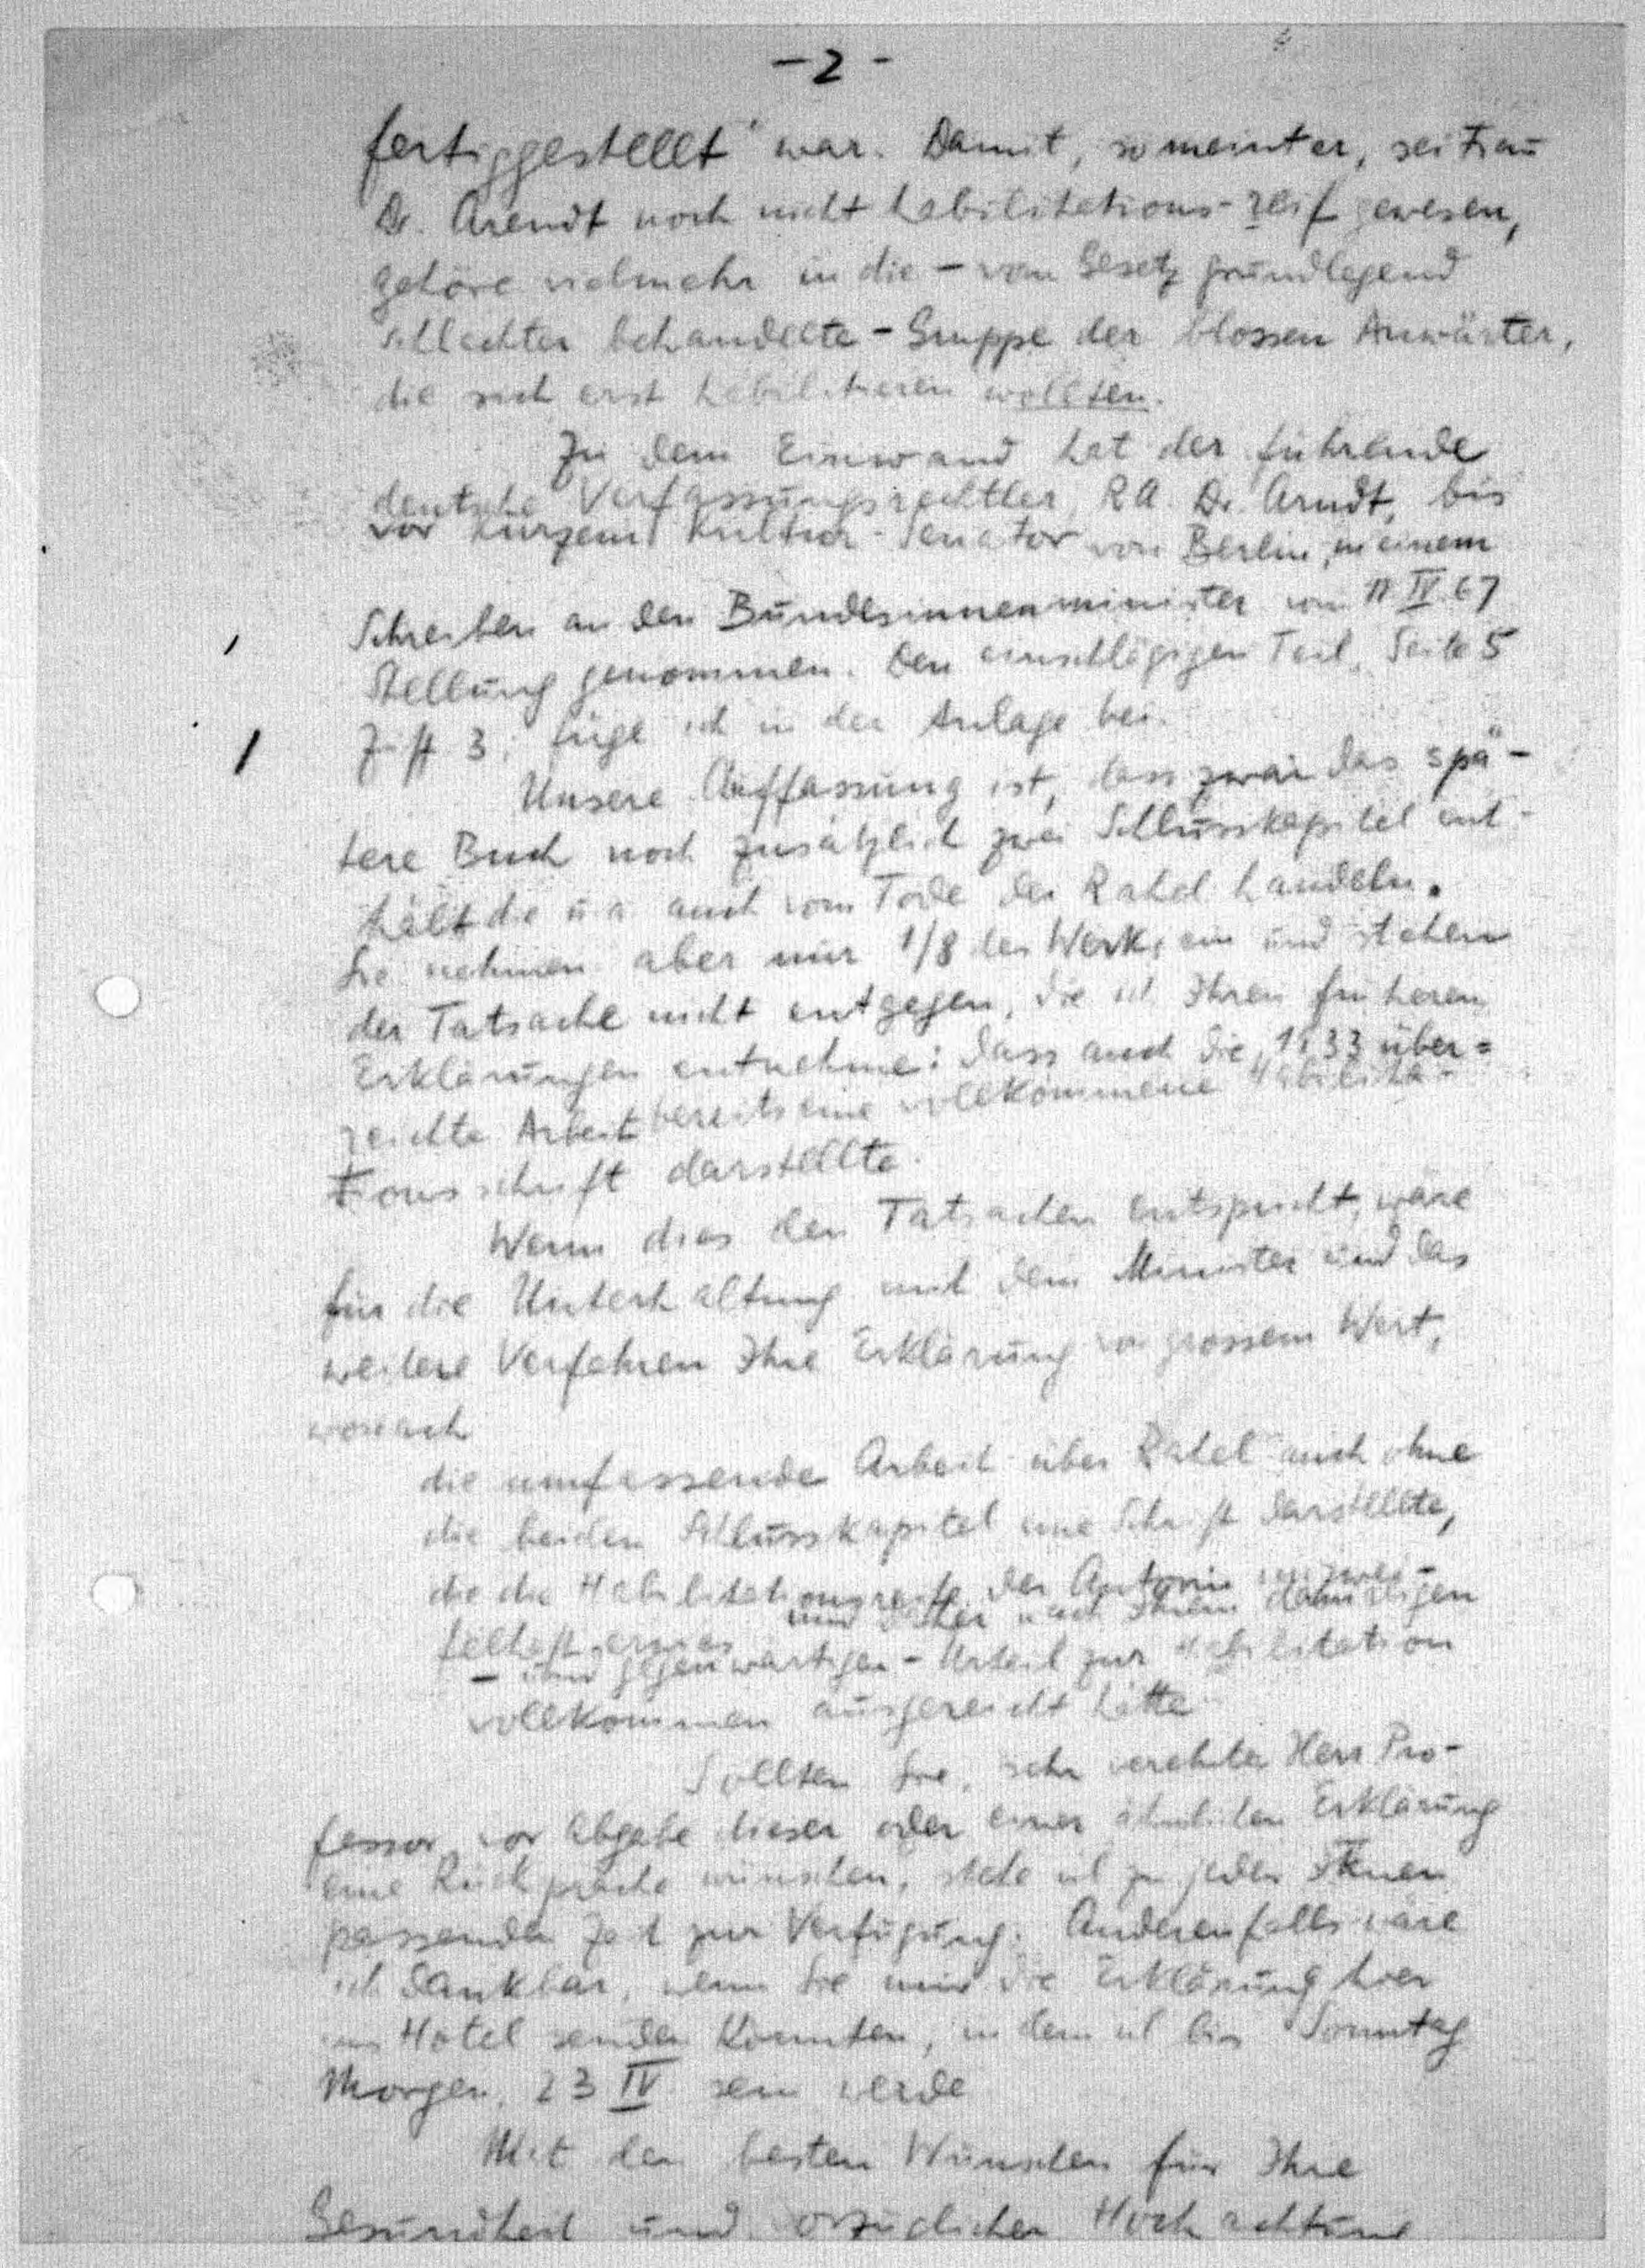 -2-
fertiggestellt" war. Damit, so meinter, sei Frau
Dr. Arendt noch nicht habilitations-reif gewesen,
gehöre vielmehr in die - vom Gesetz grundlegend
schlechter behandelte - Gruppe der blossen Anwärter,
die sich erst habilitieren wollten.
Zu dem Einwand hat der führende
deutsche Verfassungsrechtler, RA. Dr. Arndt, bis
vor kurzem Kultur-Senator von Berlin, in einem
Schreiben an den Bundesinnenminister vom IV.67
Stellung genommen. Den einschlägigen Teil, Seite 5
Ziff 3, füge ich in der Anlage bei.
Unsere Auffassung ist, dass zwar das spä-
tere Buch noch zusätzlich zwei Schlusskapitel ent-
hält die u.a. auch vom Tode der Rahel handeln.
Sie nehmen aber nur 1/8 des Werks ein und stehen
der Tatsache nicht entgegen, die ich Ihren früheren
Erklärungen entnehme: dass auch die, 1933 über=
reichte Arbeit bereits eine vollkommene Habilita-
tionsschrift darstellte.
Wenn dies den Tatsachen entspricht, wäre
für die Unterhaltung mit dem Minister und das
weitere Verfahren Ihre Erklärung von grossem Wert,
wonach
die umfassende Arbeit über Rahel auch ohne
die beiden Schlusskapitel eine Schrift darstellte,
die die Habilitationsreife der Autorin unzwei-
felhaft erwies und daher nach Ihrem damaligen
- und gegenwärtigen - Urteil zur Habilitation
vollkommen ausgereicht hätte
Sollten Sie, sehr verehrter Herr Pro-
fessor, vor Abgabe dieser oder einer ähnlichen Erklärung
eine Rücksprache wünschen, stehe ich zu jeder Ihnen
passenden Zeit zur Verfügung. Anderenfalls wäre
ich dankbar, wenn Sie mir die Erklärung hier
ins Hotel senden könnten, in dem ich bis Sonntag
Morgen, 23 IV sein werde
Mit den besten Wünschen für Ihre
Gesundheit und vorzüglicher Hochachtung